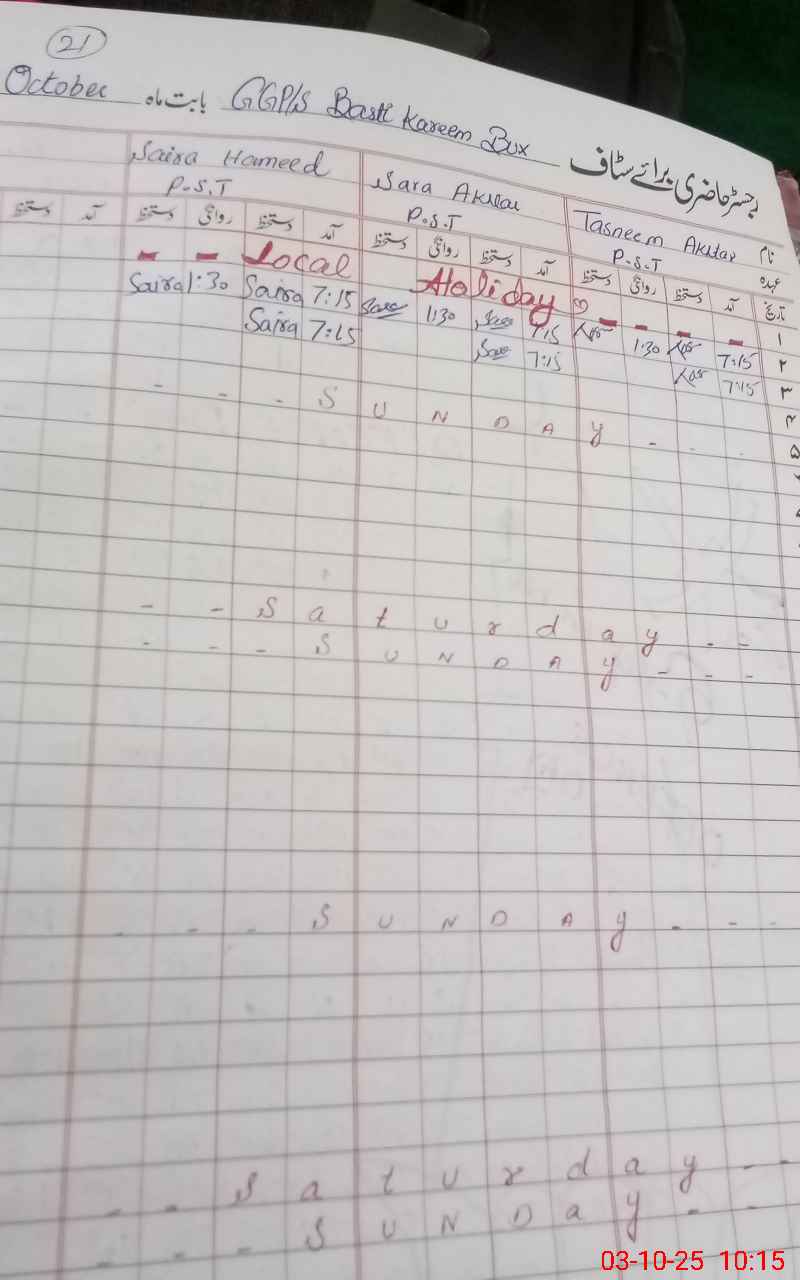 21
October بابت ماہ GGP/S Basti Kareem Bux رجسٹر حاضری برائے سٹاف
Saira Hameed Sara Akhtar Tasneem Akhtar نام
P.S.T P.S.T P.S.T عہدہ
دستخط آمد دستخط روانگی دستخط آمد دستخط روانگی دستخط آمد دستخط روانگی دستخط آمد تاریخ
- - Local Holiday - - - - ۱
Saira 1:30 Saira 7:15 Sara 1:30 Sara 7:15 1:30 7:15 ۲
Saira 7:15 Sara 7:15 7:15 ۳
۴
- - - S U N D A y - - - ۵
- - S a t u r d a y - -
- - - S U N D A y - - -
- - - S U N D A y - - -
- - S a t u r d a y - -
- - - S U N D a y - -
03-10-25 10:15